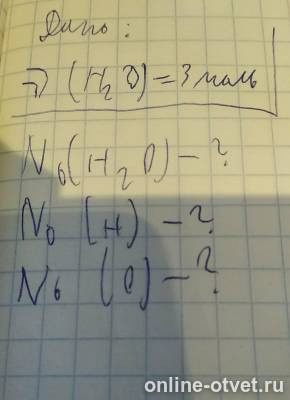 Дано:
ν (H₂O) = 3 моль
N₀ (H₂O) - ?
N₀ (H) - ?
N₀ (O) - ?
online-otvet.ru